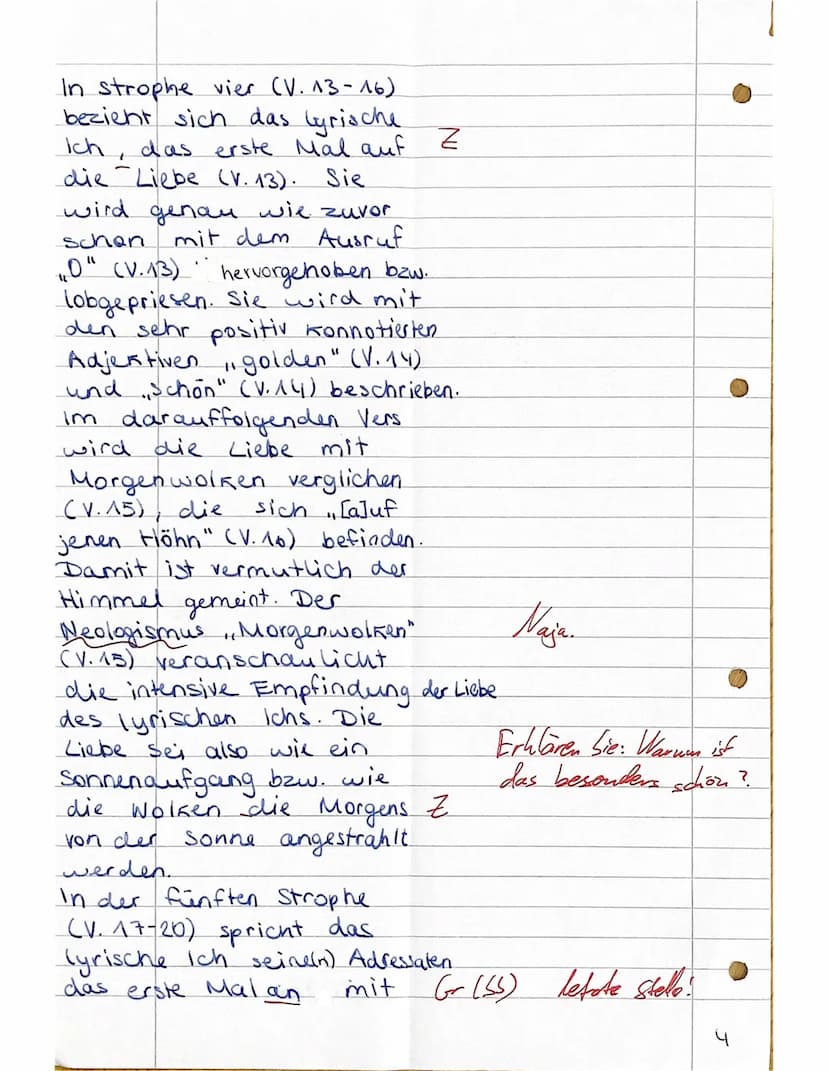 In Strophe vier (V. 13-16)
bezieht sich das lyrische
Ich, das erste Mal auf Z
die Liebe (V. 13). Sie
wird genau wie zuvor
schon mit dem Ausruf
„O" (V.13) hervorgehoben bzw.
lobgepriesen. Sie wird mit
den sehr positiv konnotierten
Adjektiven „golden" (V.14)
und „schön" (V.14) beschrieben.
Im darauffolgenden Vers
wird die Liebe mit
Morgenwolken verglichen
(V.15), die sich „[a]uf
jenen Höhn" (V.16) befinden.
Damit ist vermutlich der
Himmel gemeint. Der
Neologismus „Morgenwolken" Naja.
(V.15) veranschaulicht
die intensive Empfindung der Liebe
des lyrischen Ichs. Die
Liebe sei also wie ein Erklären Sie: Warum ist
Sonnenaufgang bzw. wie das besonders schön?
die Wolken die Morgens Z
von der Sonne angestrahlt
werden.
In der fünften Strophe
(V. 17-20) spricht das
lyrische Ich seine(n) Adressaten
das erste Mal an mit Gr (SS) letzte Stelle!
4